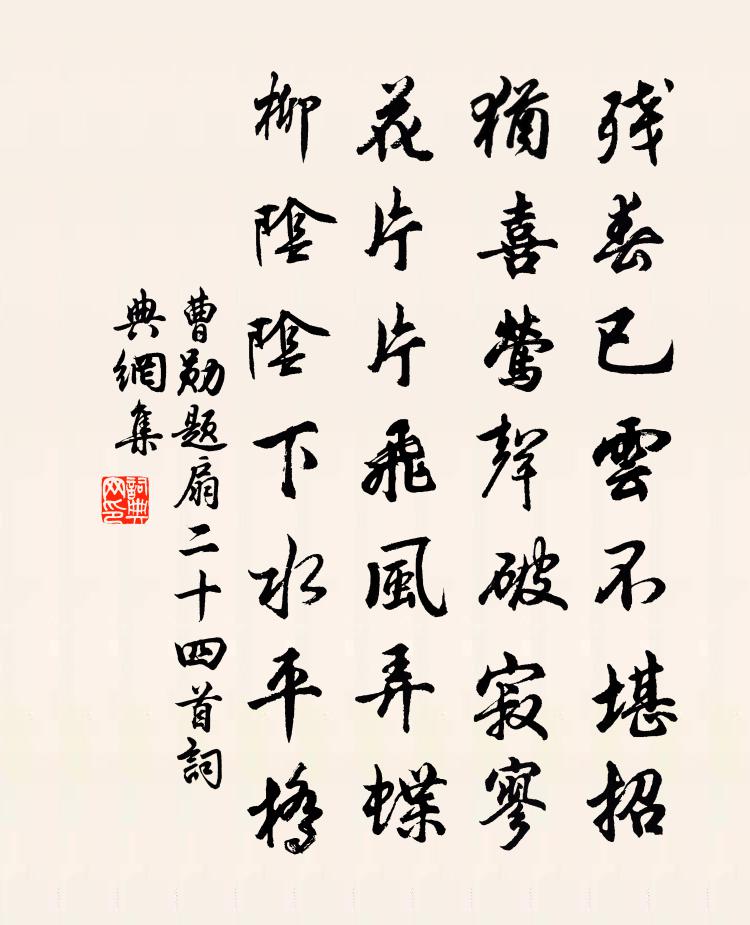 残春已雲不堪招
猶喜鶯聲破寂寥
花片片飛風弄蝶
柳陰陰下水平橋
曹勛題扇二十四首詞
典網集
詞典
网印